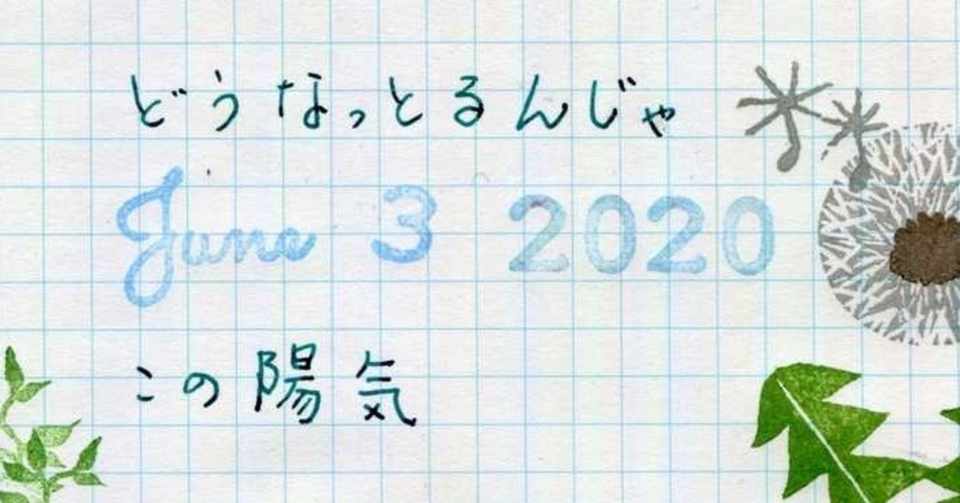 どうなっとるんじゃ
June 3 2020
この陽気